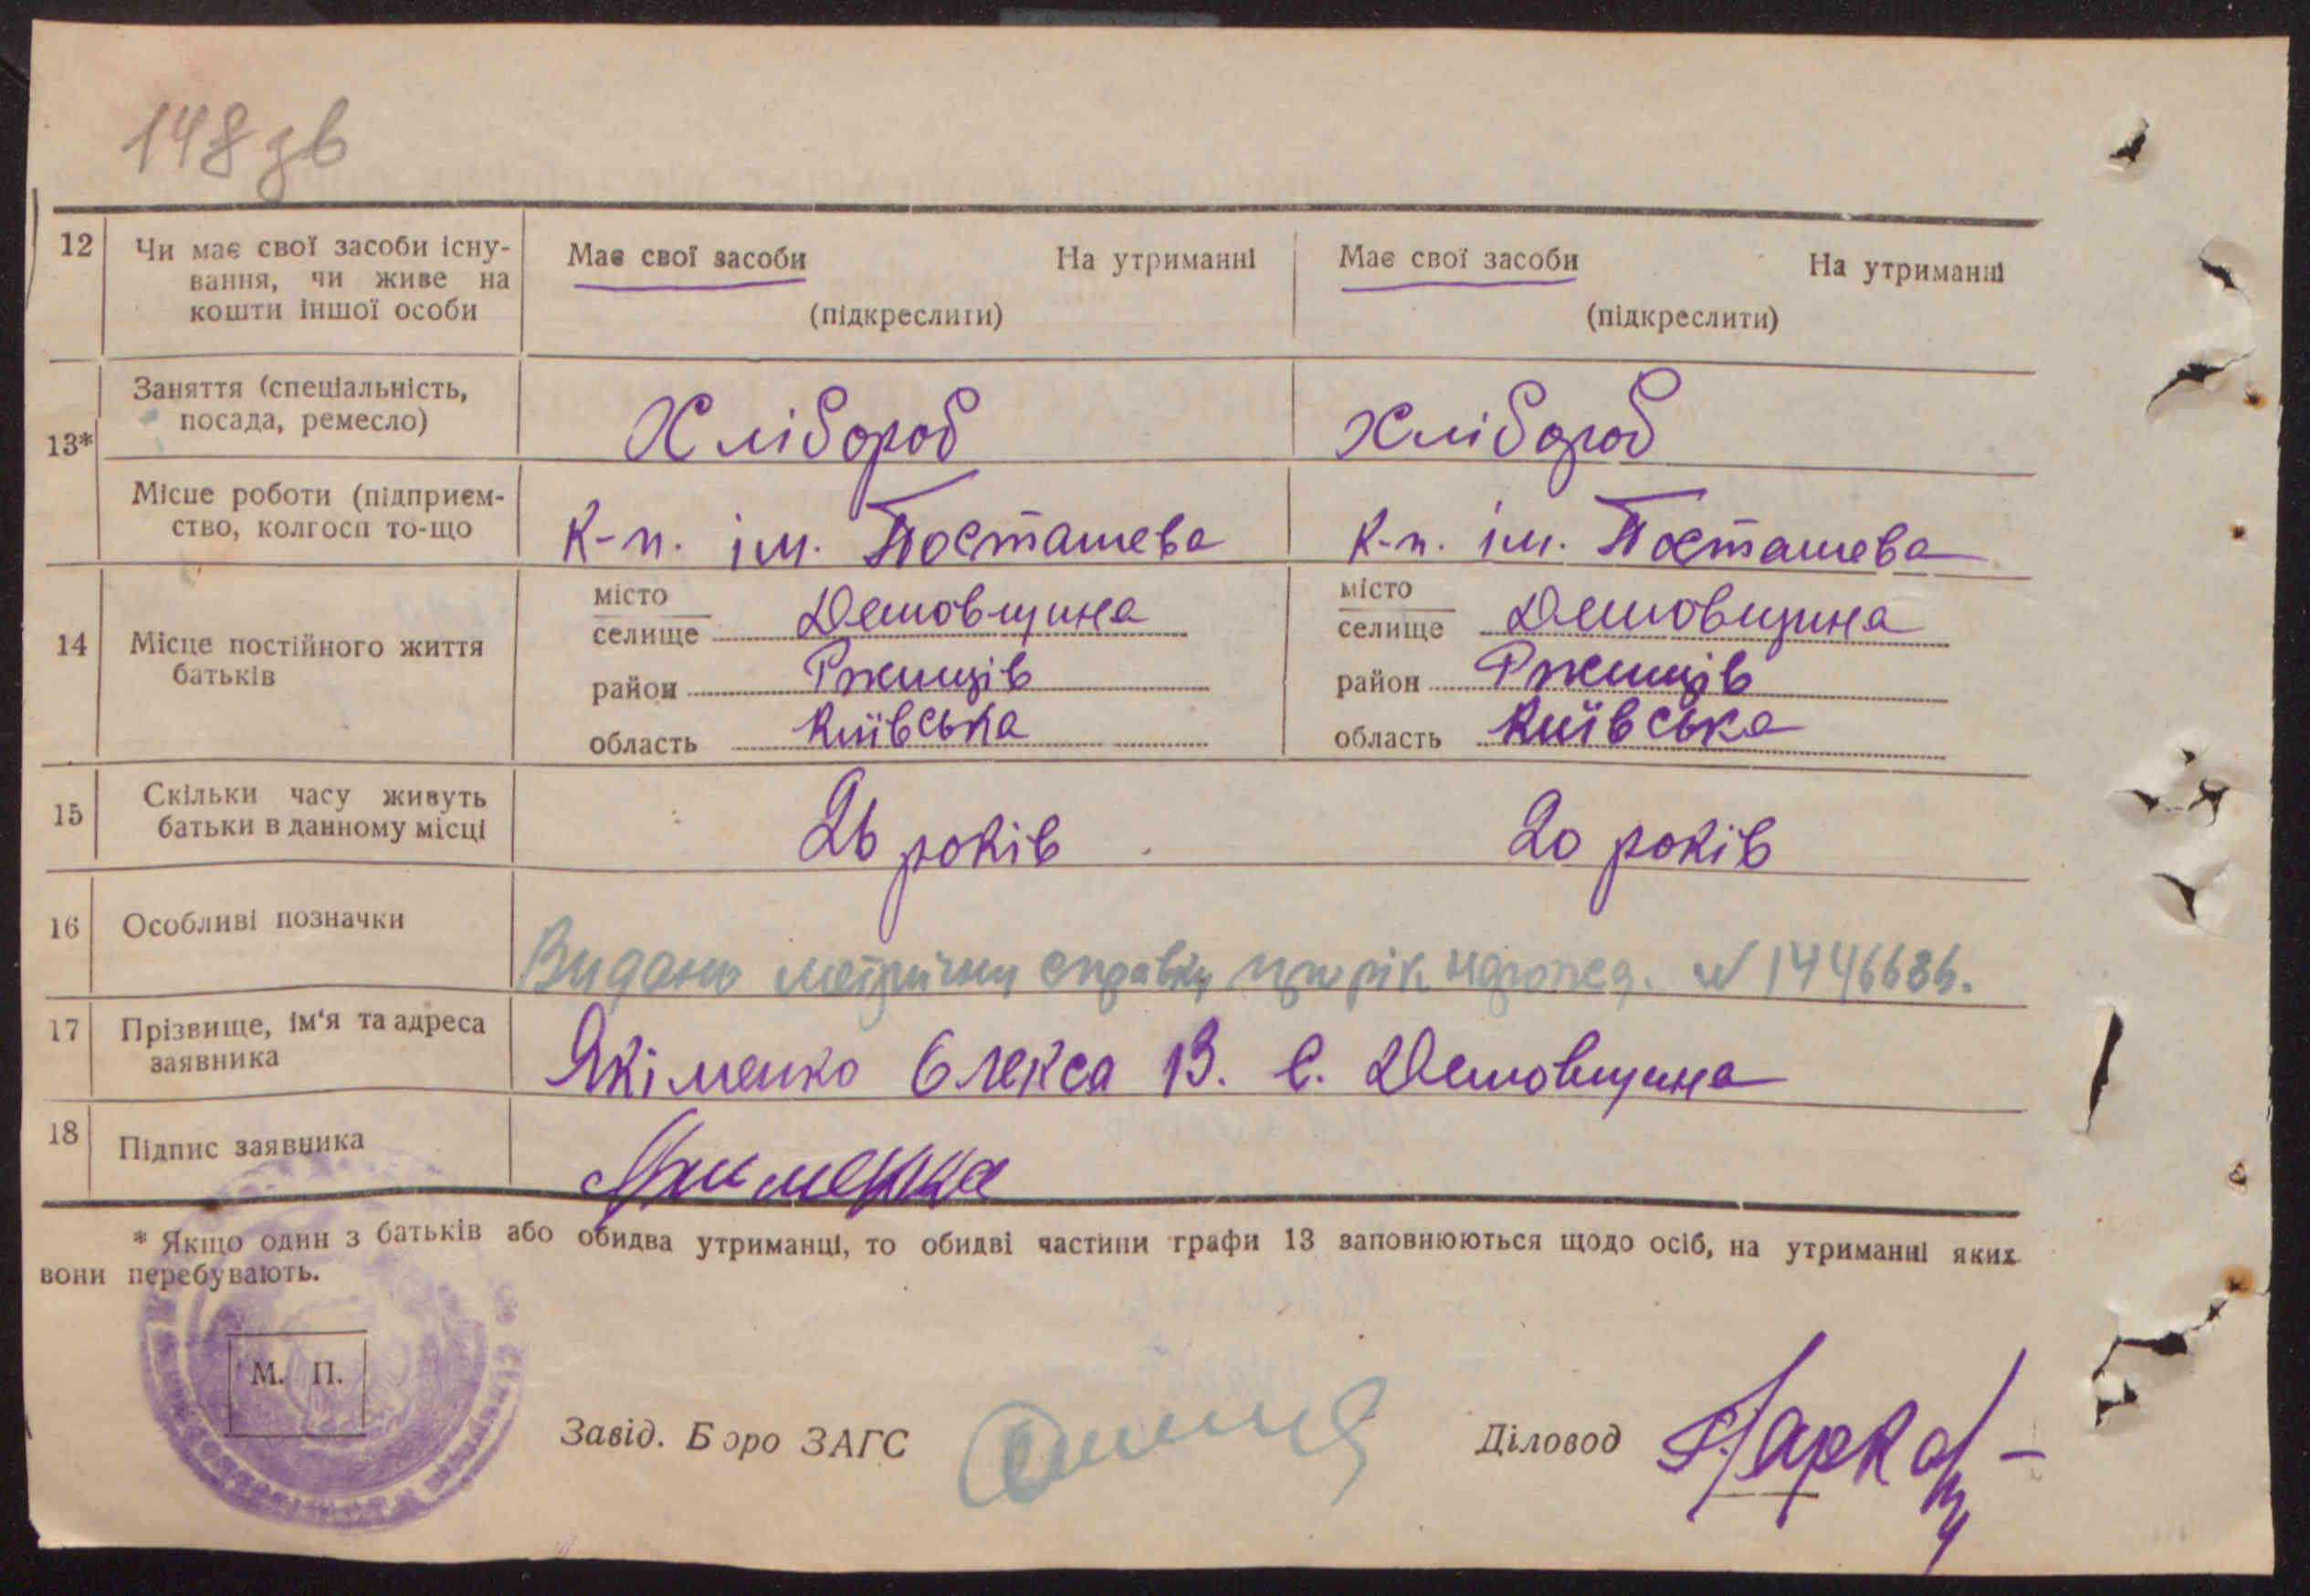 148 зв
12 Чи має свої засоби існу- Має свої засоби На утриманні Має свої засоби На утриманні
вання, чи живе на
кошти іншої особи (підкреслити) (підкреслити)
Заняття (спеціальність, Хлібороб Хлібороб
посада, ремесло)
13*
Місце роботи (підприєм-
ство, колгосп то-що К-п. ім. Посташева К-п. ім. Посташева
місто місто
селище Демовщина селище Демовщина
14 Місце постійного життя
батьків
район Ржищів район Ржищів
область Київська область Київська
15 Скільки часу живуть
батьки в данному місці 26 років 20 років
16 Особливі позначки
Видано метричну справку про рік народжед. N 1446636.
17 Прізвище, ім'я та адреса
заявника Якіменко Олекса В. С. Демовщина
18 Підпис заявника
* Якщо один з батьків або обидва утриманці, то обидві частини графи 13 заповнюються щодо осіб, на утриманні яких
вони перебувають.
М. П.
Завід. Бюро ЗАГС Діловод